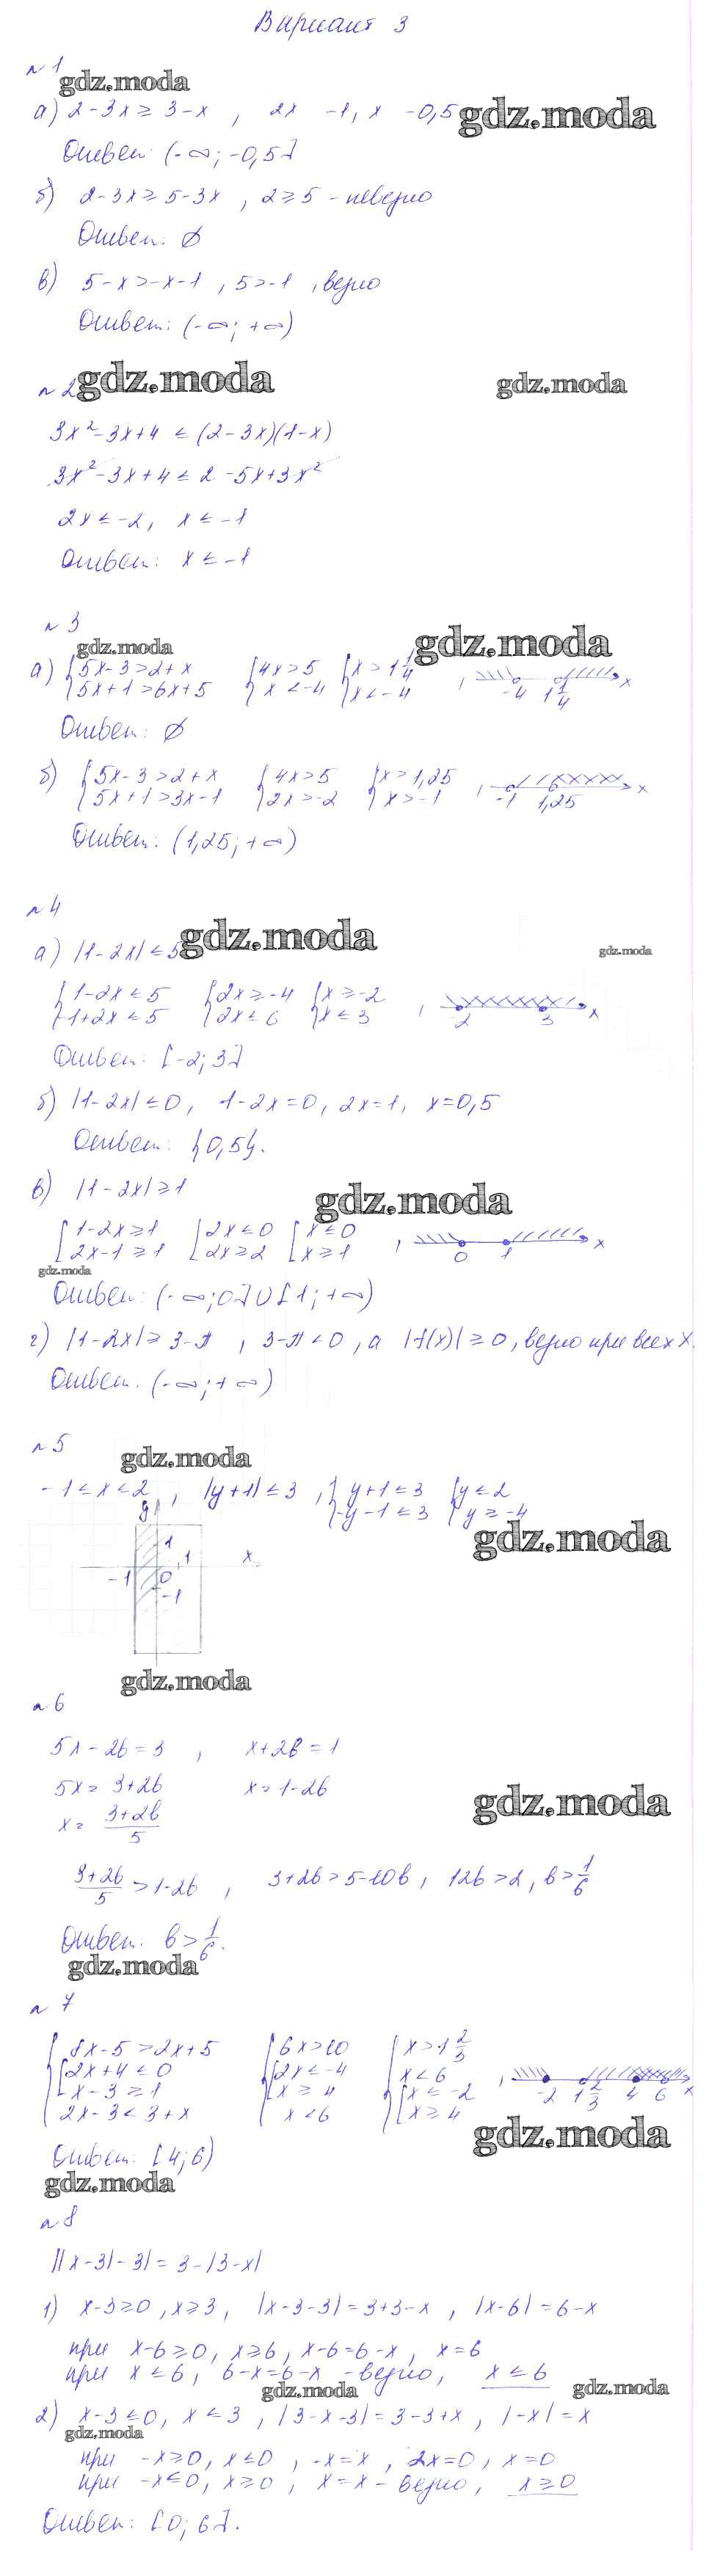 Вариант 3
№1
gdz.moda
а) 2-3x ≥ 3-x , 2x -1, x -0,5 gdz.moda
Ответ: (-∞; -0,5]
б) 2-3x ≥ 5-3x , 2 ≥ 5 - неверно
Ответ: ∅
в) 5-x > -x-1 , 5 > -1 , верно
Ответ: (-∞; +∞)
№2 gdz.moda gdz.moda
3x²-3x+4 ≤ (2-3x)(1-x)
3x²-3x+4 ≤ 2-5x+3x²
2x ≤ -2, x ≤ -1
Ответ: x ≤ -1
№3
gdz.moda gdz.moda
а) {5x-3>2+x {4x>5 {x>1 1/4
{5x+1>6x+5 {x<-4 {x<-4 , -4 1 1/4 x
Ответ: ∅
б) {5x-3>2+x {4x>5 {x>1,25
{5x+1>3x-1 {2x>-2 {x>-1 , -1 1,25 x
Ответ: (1,25; +∞)
№4
а) |1-2x| ≤ 5 gdz.moda gdz.moda
{1-2x ≤ 5 {2x ≥ -4 {x ≥ -2
{-1+2x ≤ 5 {2x ≤ 6 {x ≤ 3 , -2 3 x
Ответ: [-2; 3]
б) |1-2x| ≤ 0, 1-2x=0, 2x=1, x=0,5
Ответ: {0,5}.
в) |1-2x| ≥ 1 gdz.moda
[1-2x ≥ 1 [2x ≤ 0 [x ≤ 0
[2x-1 ≥ 1 [2x ≥ 2 [x ≥ 1 , 0 1 x
gdz.moda
Ответ: (-∞; 0] U [1; +∞)
г) |1-2x| ≥ 3-π , 3-π < 0 , а |f(x)| ≥ 0, верно при всех x.
Ответ: (-∞; +∞)
№5
gdz.moda
-1 ≤ x ≤ 2 , |y+1| ≤ 3 , {y+1 ≤ 3 {y ≤ 2
{-y-1 ≤ 3 {y ≥ -4
gdz.moda
y
1
1 x
-1 0
-1
gdz.moda
№6
5x-2b=3 , x+2b=1
5x = 3+2b x = 1-2b
gdz.moda
x = (3+2b)/5
(3+2b)/5 > 1-2b , 3+2b > 5-10b, 12b > 2, b > 1/6
Ответ: b > 1/6.
gdz.moda
№7
{8x-5>2x+5 {6x>10 {x>1 2/3
{[2x+4 ≤ 0 {[2x ≤ -4 {x<6
{[x-3 ≥ 1 {[x ≥ 4 {[x ≤ -2
{2x-3<3+x {x<6 {[x ≥ 4 , -2 1 2/3 4 6 x
gdz.moda
Ответ: [4; 6)
gdz.moda
№8
||x-3|-3| = 3-|3-x|
1) x-3 ≥ 0, x ≥ 3, |x-3-3| = 3+3-x , |x-6| = 6-x
при x-6 ≥ 0, x ≥ 6, x-6=6-x, x=6
при x ≤ 6, 6-x=6-x - верно, x ≤ 6
gdz.moda gdz.moda
2) x-3 ≤ 0, x ≤ 3 , |3-x-3| = 3-3+x , |-x| = x
gdz.moda
при -x ≥ 0, x ≤ 0 , -x=x , 2x=0, x=0
при -x ≤ 0, x ≥ 0 , x=x - верно, x ≥ 0
Ответ: [0; 6].